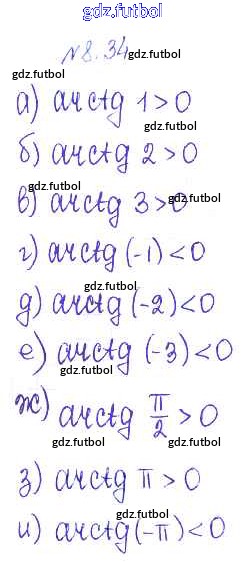 gdz.futbol
№8.34
gdz.futbol
gdz.futbol
а) arctg 1 > 0
gdz.futbol
б) arctg 2 > 0
gdz.futbol
gdz.futbol
в) arctg 3 > 0
г) arctg (-1) < 0
gdz.futbol
gdz.futbol
д) arctg (-2) < 0
е) arctg (-3) < 0
gdz.futbol
gdz.futbol
ж) arctg π/2 > 0
gdz.futbol
з) arctg π > 0
gdz.futbol
gdz.futbol
и) arctg (-π) < 0
gdz.futbol